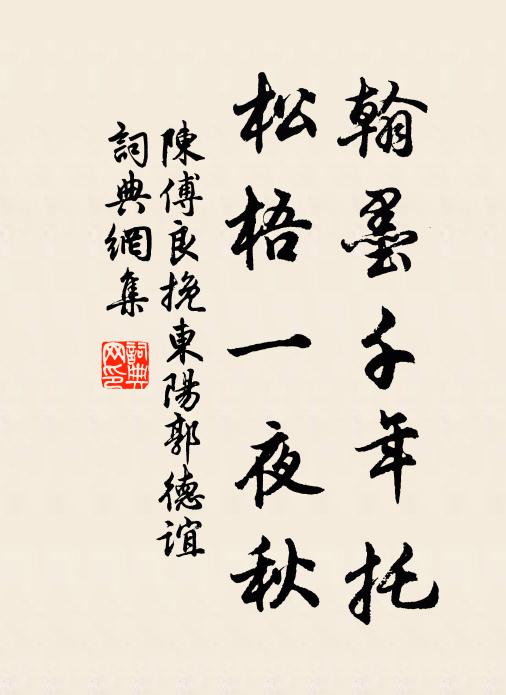 翰墨千年托
松梧一夜秋
陳傅良挽東陽郭德誼
詞典網集
詞典網印